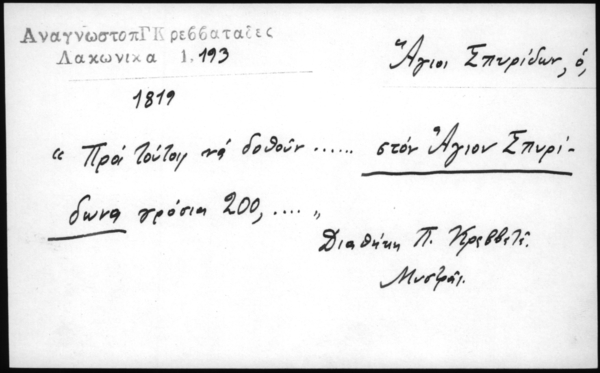 ΑναγνωστοπΓΚρεββαταδες
Λακωνικα 1, 193
Ἅγιοι Σπυρίδων, ὁ,
1819
" Πρὸ τούτοις νὰ δοθοῦν ...... στὸν Ἅγιον Σπυρί-
δωνα γρόσια 200, .... "
Διαθήκη Π. Κρεββατᾶ.
Μυστρᾶς.